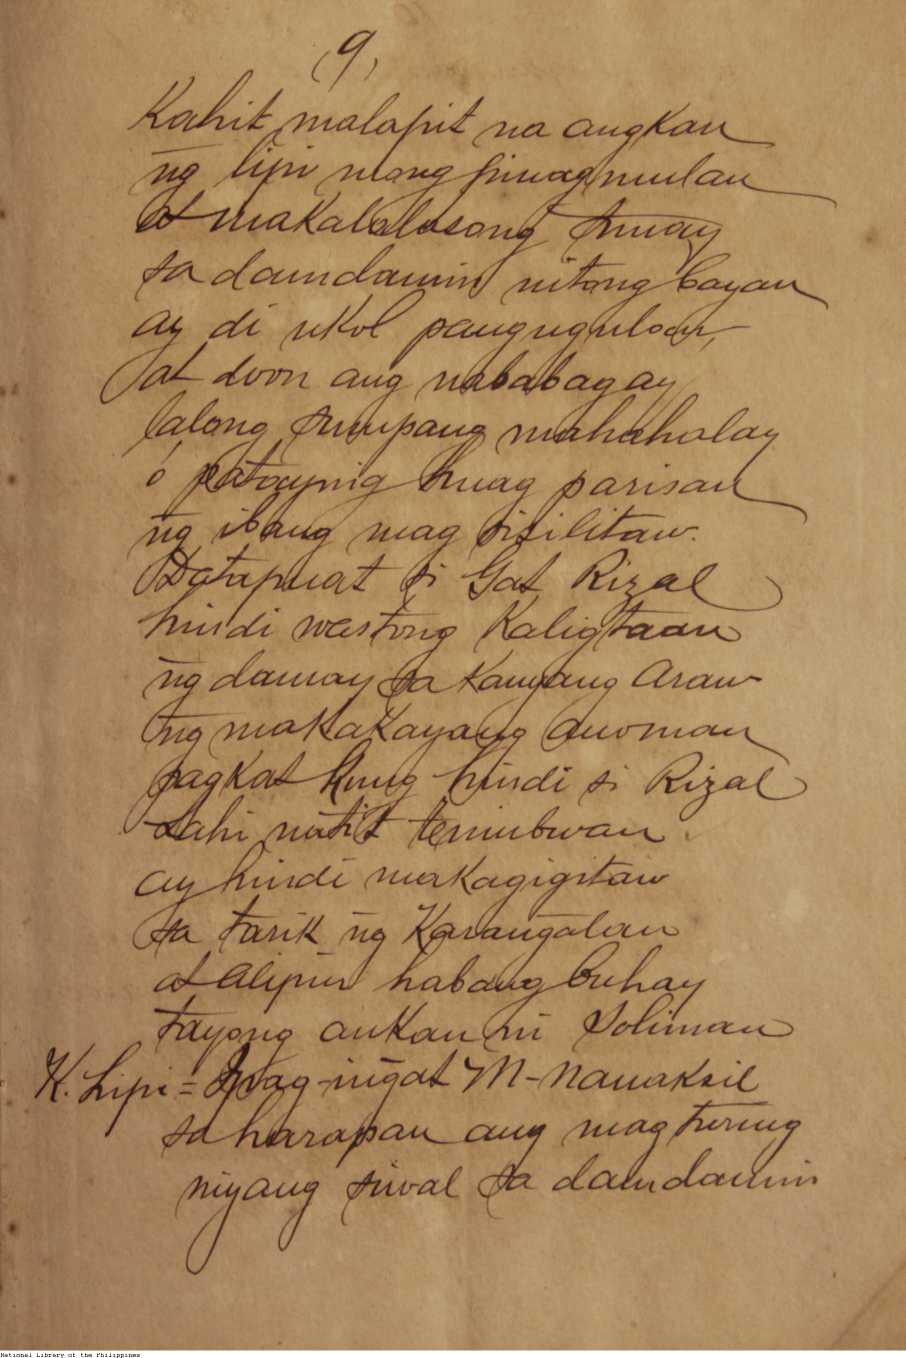 (9)
Kahit malapit na angkan
n̄g lipi mong pinagmulan
at makalalasong tunay
sa damdamin nitong bayan
ay di ukol pangugulan,
at doon ang nababagay
lalong sumpang mahahalay
ó patayn̄g huag parisan
n̄g ibang mag sisilitaw.
Datapuat si Gat Rizal
hindi wastong Kaligtaan
n̄g damay sa kanyang Araw
n̄g makakayang anoman
pagkat kung hindi si Rizal
Lahi nati't tinubuan
ay hindi makagigitaw
sa tarik n̄g Karan̄galan
at alipin habang buhay
tayong ankan ni Soliman
K. Lipi = Mag-in̄gat M-Nanaksil
sa harapan ang mag turing
niyang suval sa damdamin
National Library of the Philippines